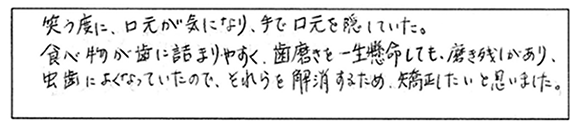 笑う度に、口元が気になり、手で口元を隠していた。
食べ物が歯に詰まりやすく、歯磨きを一生懸命しても、磨き残しがあり、
虫歯によくなっていたので、それらを解消するため、矯正したいと思いました。